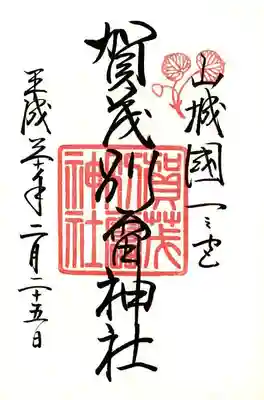 山城國一之宮
賀茂別雷神社
平成三十年二月二十五日
賀茂
別雷
神社